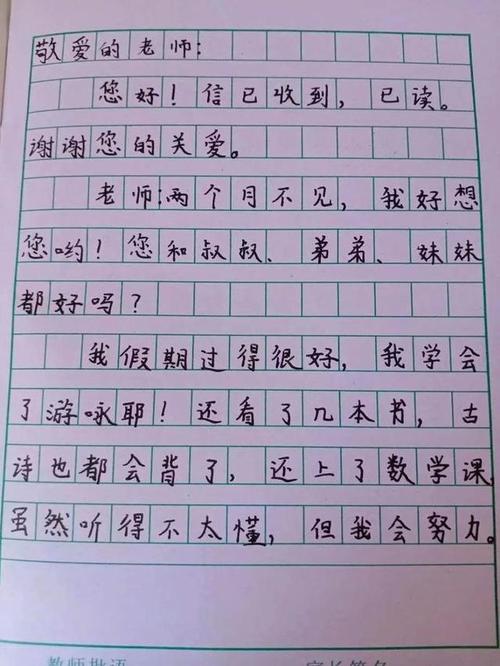 敬爱的老师:
您好！信已收到，已读。
谢谢您的关爱。
老师:两个月不见，我好想
您哟！您和叔叔、弟弟、妹妹
都好吗？
我假期过得很好，我学会
了游咏耶！还看了几本书，古
诗也都会背了，还上了数学课，
虽然听得不太懂，但我会努力。
教师批语
家长签名